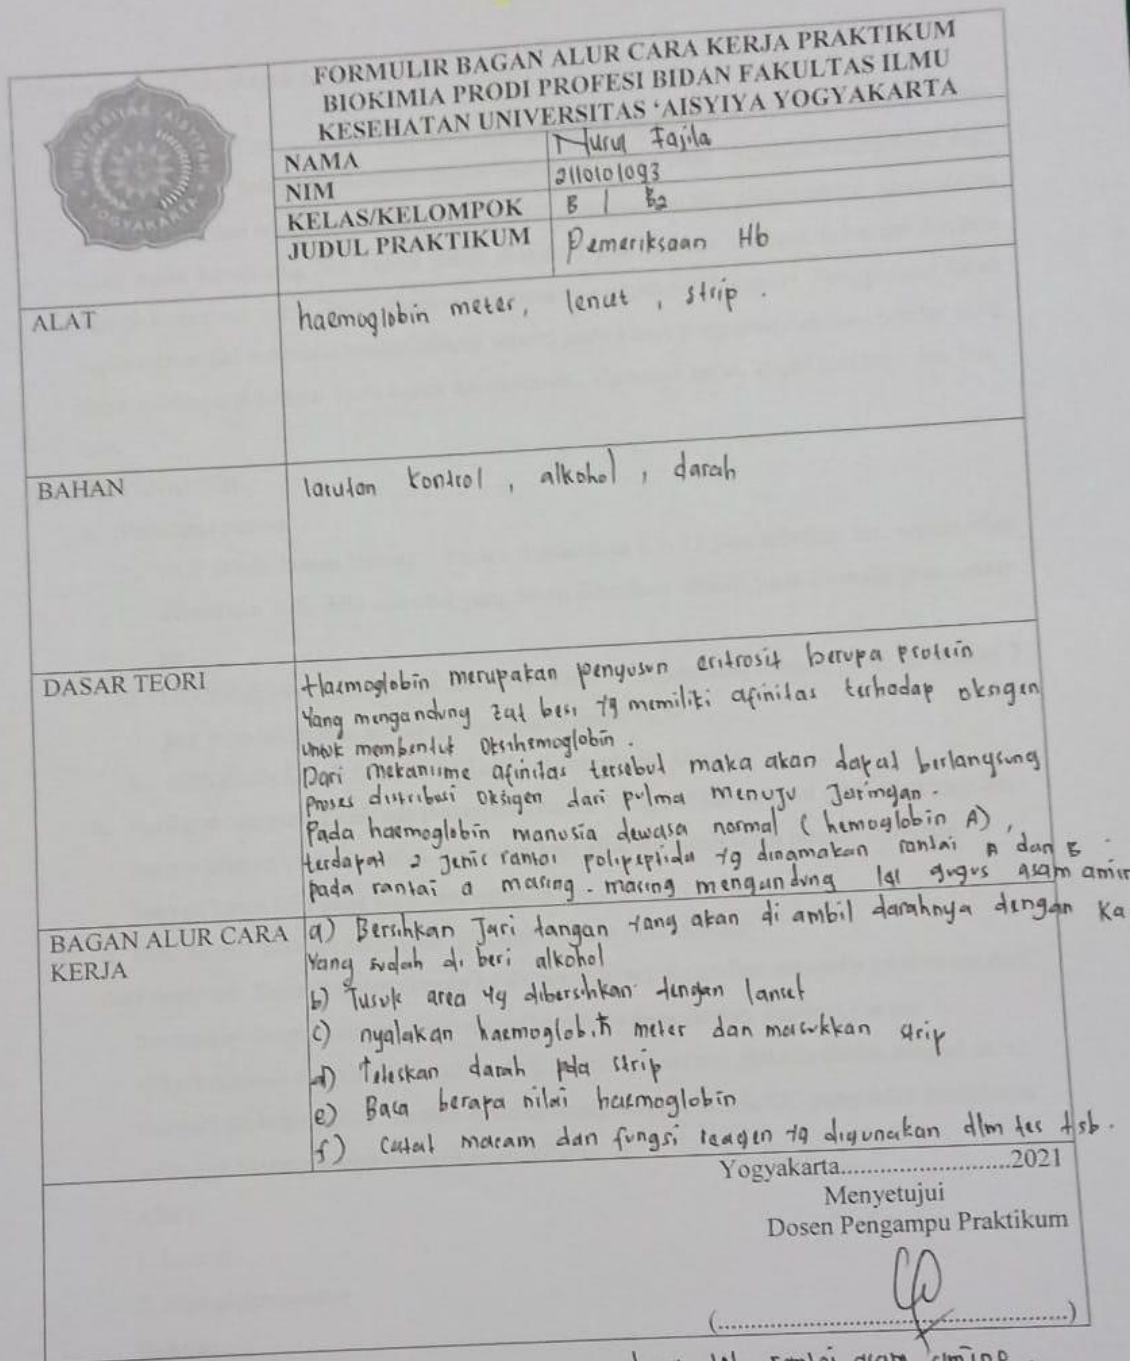 UNIVERSITAS 'AISYIYAH
YOGYAKARTA
FORMULIR BAGAN ALUR CARA KERJA PRAKTIKUM
BIOKIMIA PRODI PROFESI BIDAN FAKULTAS ILMU
KESEHATAN UNIVERSITAS 'AISYIYA YOGYAKARTA
NAMA Nurul Fajila
NIM 2110101093
KELAS/KELOMPOK B / B2
JUDUL PRAKTIKUM Pemeriksaan Hb
ALAT haemoglobin meter, lencet, strip.
BAHAN larutan kontrol, alkohol, darah
DASAR TEORI Haemoglobin merupakan penyusun eritrosit berupa protein
Yang mengandung zat besi yg memiliki afinitas terhadap oksigen
untuk membentuk oksihemoglobin.
Dari mekanisme afinitas tersebut maka akan dapat berlangsung
proses distribusi oksigen dari pulma menuju Jaringan.
Pada haemoglobin manusia dewasa normal (hemoglobin A),
terdapat 2 jenis rantai polipeptida yg dinamakan rantai A dan B.
pada rantai a masing-masing mengandung 141 gugus asam amin
BAGAN ALUR CARA
KERJA
a) Bersihkan Jari tangan yang akan di ambil darahnya dengan Ka
Yang sudah di beri alkohol
b) Tusuk area yg dibersihkan dengan lancet
c) nyalakan haemoglobin meter dan masukkan strip
d) Teteskan darah pda strip
e) Baca berapa nilai haemoglobin
f) Catat macam dan fungsi reagen yg digunakan dlm tes tsb.
Yogyakarta..........................2021
Menyetujui
Dosen Pengampu Praktikum
(.....................................................)
rantai asam amino